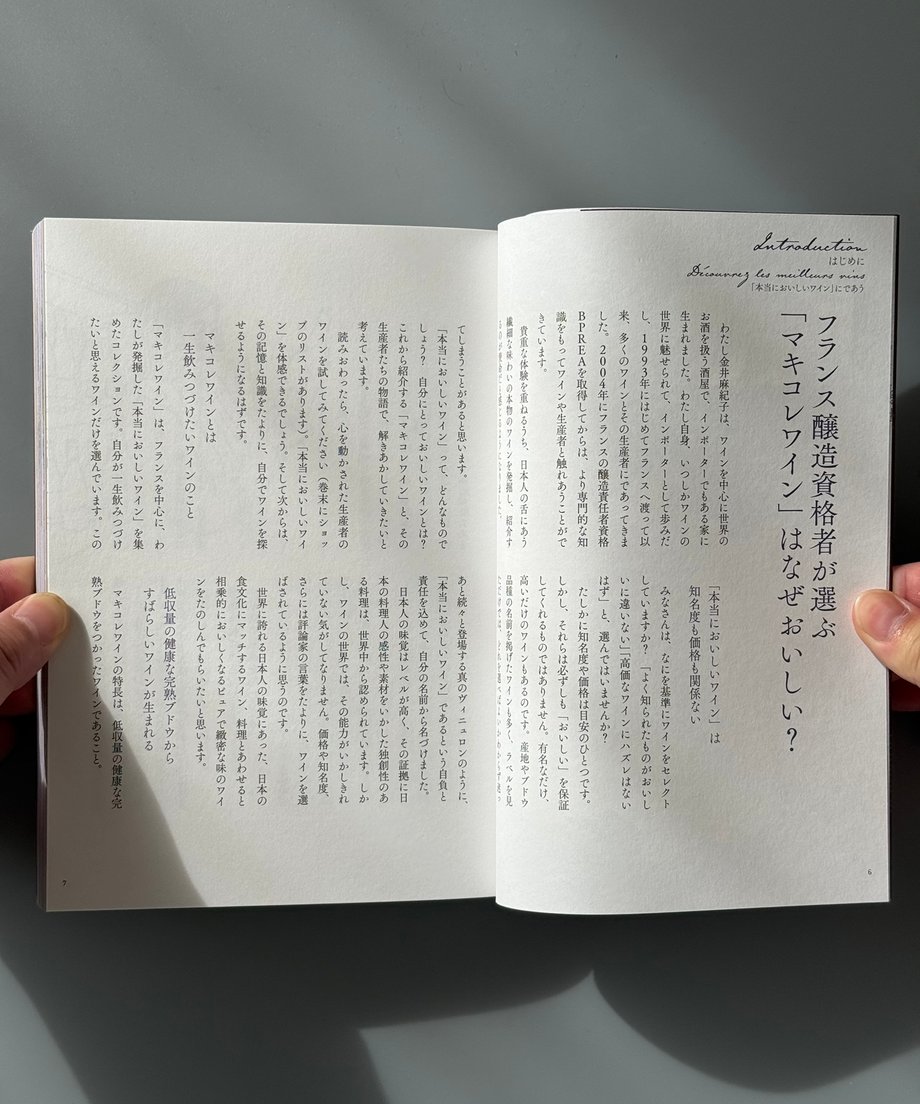 Introduction
はじめに
Découvrez les meilleurs vins
「本当においしいワイン」にであう
フランス醸造資格者が選ぶ
「マキコレワイン」はなぜおいしい？
わたし金井麻紀子は、ワインを中心に世界の
お酒を扱う酒屋で、インポーターでもある家に
生まれました。わたし自身、いつしかワインの
世界に魅せられて、インポーターとして歩みだ
し、1993年にはじめてフランスへ渡って以
来、多くのワインとその生産者にであってきま
した。2004年にフランスの醸造責任者資格
BPREAを取得してからは、より専門的な知
識をもってワインや生産者と触れあうことがで
きています。
貴重な体験を重ねるうち、日本人の舌にあう
繊細な味わいの本物のワインを発掘し、紹介す
「本当においしいワイン」は
知名度も価格も関係ない
みなさんは、なにを基準にワインをセレクト
していますか？　「よく知られたものがおいし
いに違いない」「高価なワインにハズレはない
はず」と、選んではいませんか？
たしかに知名度や価格は目安のひとつです。
しかし、それらは必ずしも「おいしい」を保証
してくれるものではありません。有名なだけ、
高いだけのワインもあるのです。産地やブドウ
品種の名前を掲げたワインも多く、ラベルを見
6
てしまうことがあると思います。
「本当においしいワイン」って、どんなもので
しょう？　自分にとっておいしいワインとは？
これから紹介する「マキコレワイン」と、その
生産者たちの物語で、解きあかしていきたいと
考えています。
読みおわったら、心を動かされた生産者の
ワインを試してみてください（巻末にショッ
プのリストがあります）。「本当においしいワイ
ン」を体感できるでしょう。そして次からは、
その記憶と知識をたよりに、自分でワインを探
せるようになるはずです。
マキコレワインとは
一生飲みつづけたいワインのこと
「マキコレワイン」は、フランスを中心に、わ
たしが発掘した「本当においしいワイン」を集
めたコレクションです。自分が一生飲みつづけ
たいと思えるワインだけを選んでいます。この
あと続々と登場する真のヴィニュロンのように、
「本当においしいワイン」であるという自負と
責任を込めて、自分の名前から名づけました。
日本人の味覚はレベルが高く、その証拠に日
本の料理人の感性や素材をいかした独創性のあ
る料理は、世界中から認められています。しか
し、ワインの世界では、その能力がいかしきれ
ていない気がしてなりません。価格や知名度、
さらには評論家の言葉をたよりに、ワインを選
ばされているように思うのです。
世界に誇れる日本人の味覚にあった、日本の
食文化にマッチするワイン、料理とあわせると
相乗的においしくなるピュアで緻密な味のワイ
ンをたのしんでもらいたいと思います。
低収量の健康な完熟ブドウから
すばらしいワインが生まれる
マキコレワインの特長は、低収量の健康な完
熟ブドウをつかったワインであること。
7